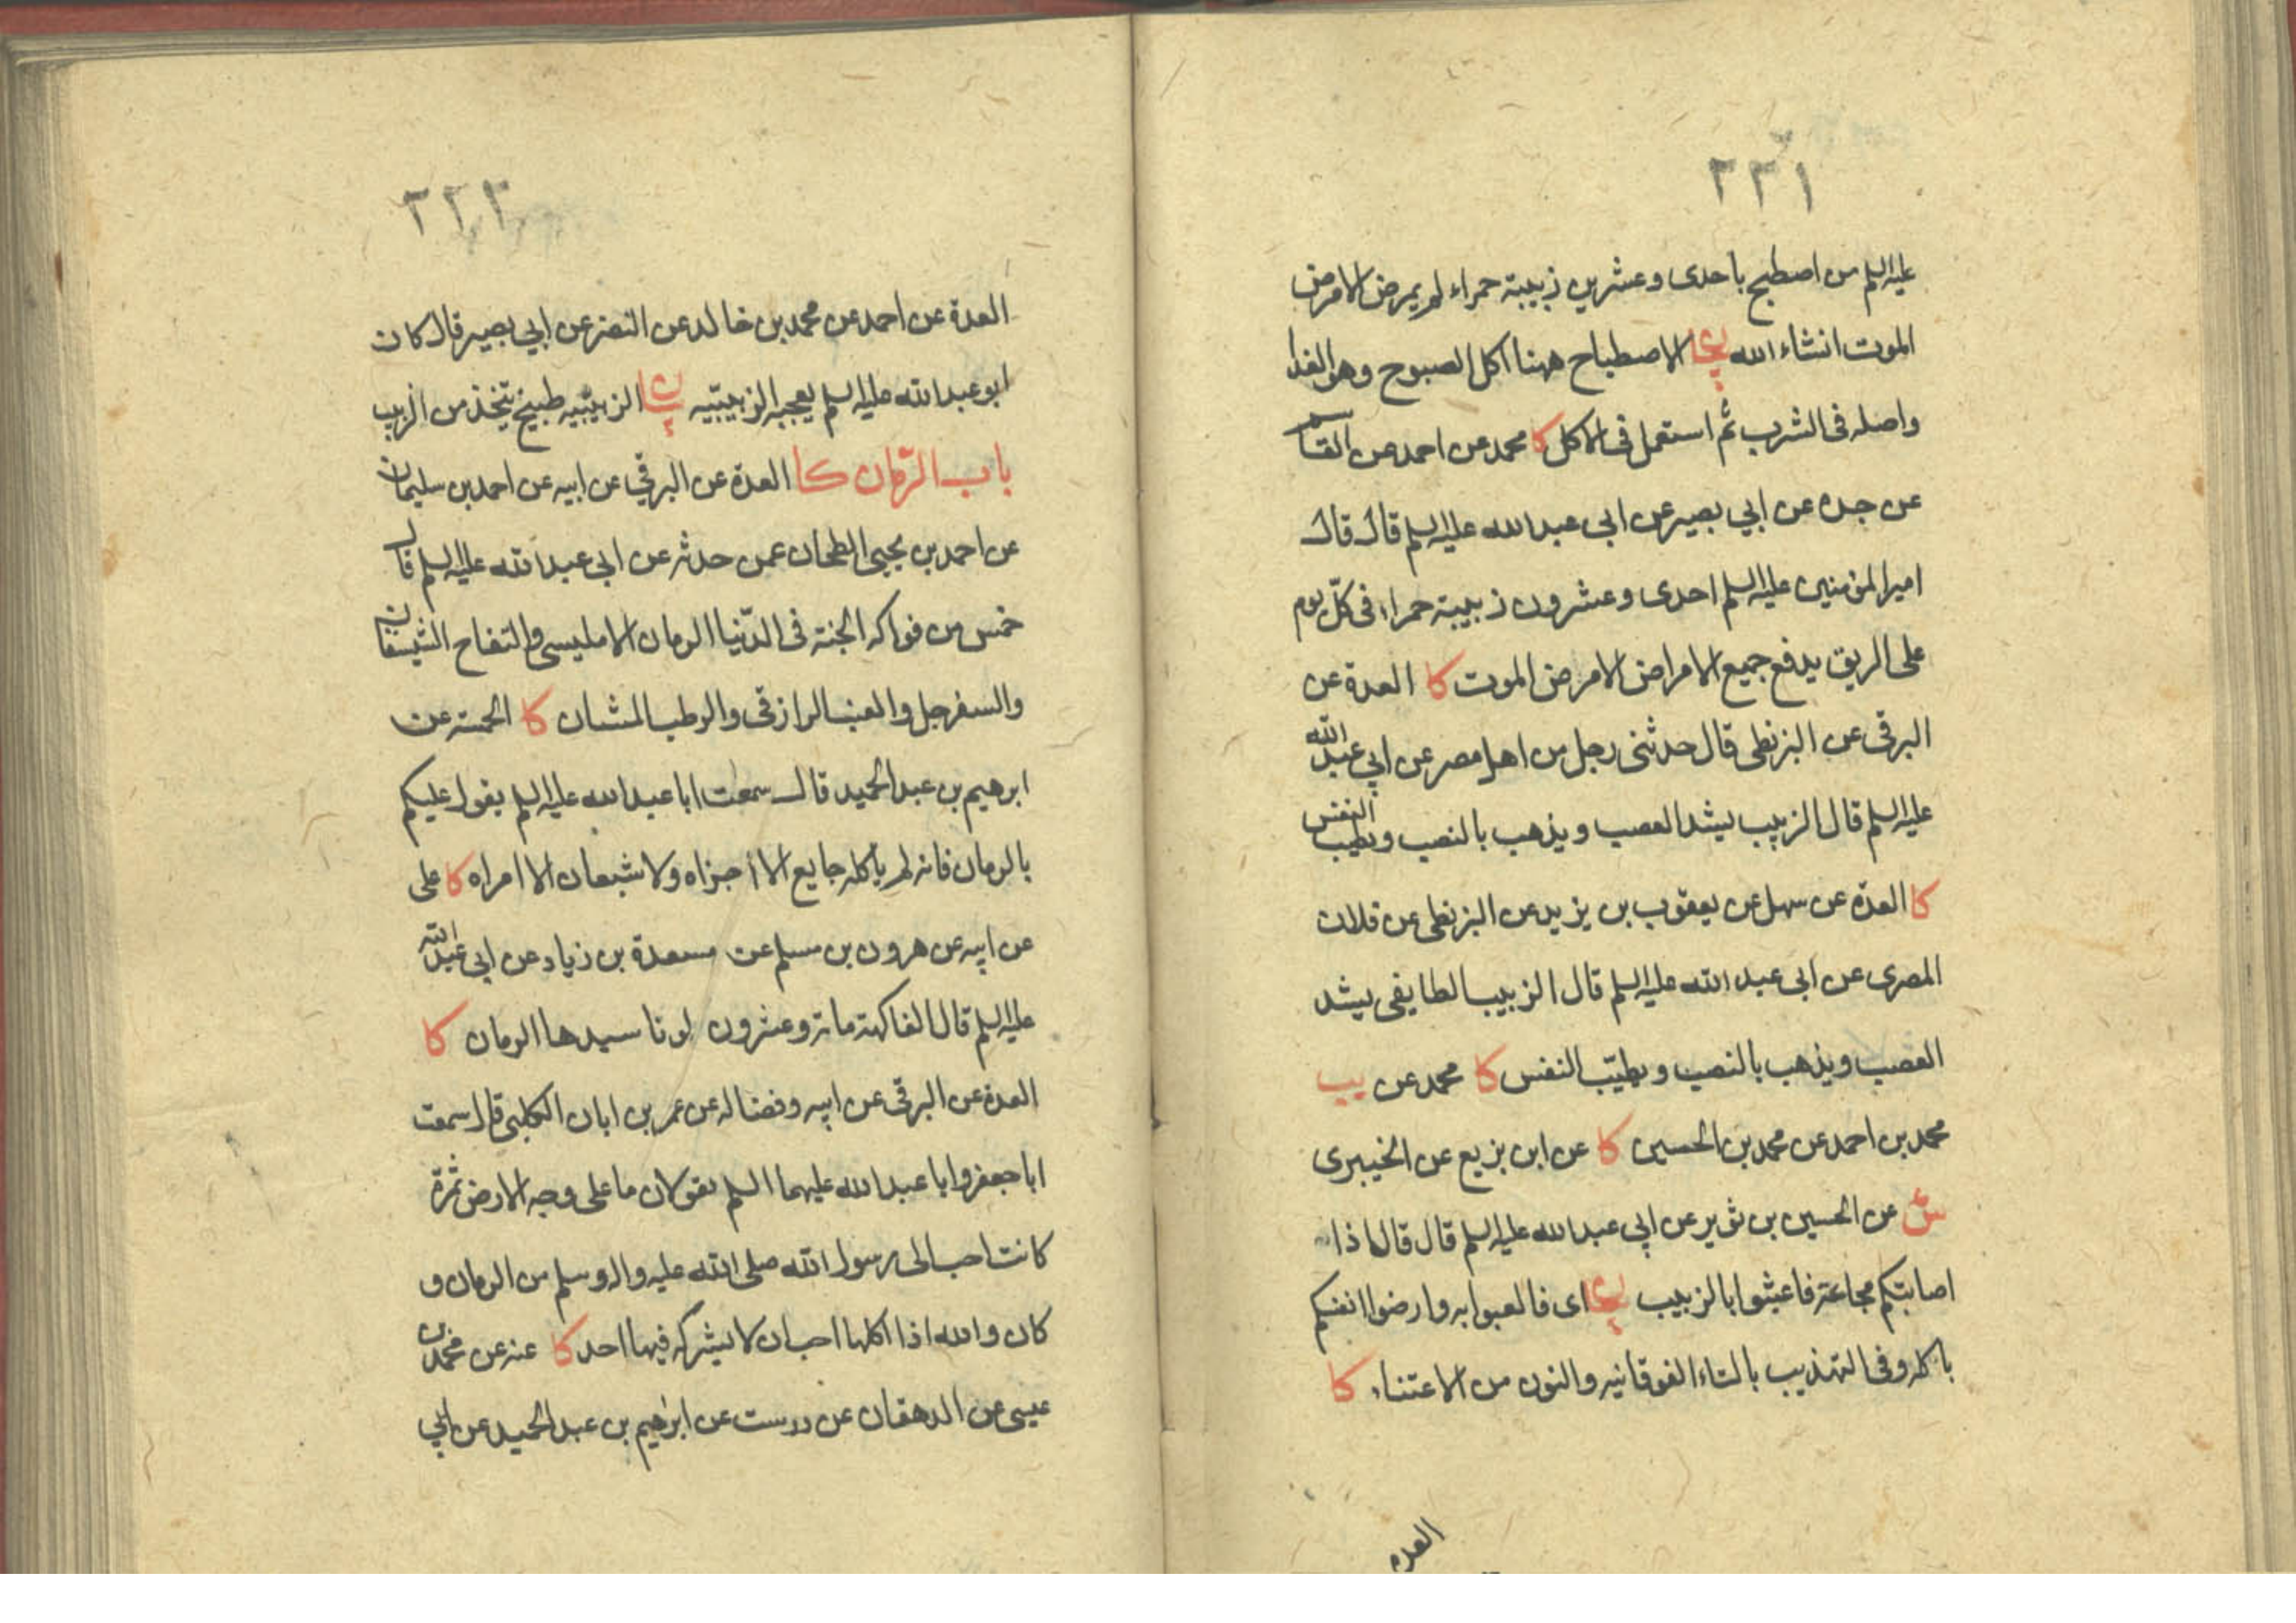 ٢٢١
عليه السلم من اصطبح باحدى وعشرين زبيبة حمراء لم يمرض الا مرض
الموت انشاء الله الاصطباح ههنا اكل الصبوح وهو الغدا
واصله فى الشرب ثم استعمل فى الاكل كا محمد عن احمد عن القاسم
عن جده عن ابي بصير عن ابى عبد الله عليه السلم قال قال
امير المؤمنين عليه السلم احدى وعشرون زبيبة حمراء فى كلّ يوم
على الريق يدفع جميع الامراض الا مرض الموت كا العدة عن
البرقى عن البزنطى قال حدثنى رجل من اهل مصر عن ابي عبد الله
عليه السلم قال الزبيب يشد العصب ويذهب بالنصب ويطيب النفس
كا العدة عن سهل عن يعقوب بن يزيد عن البزنطى عن فلان
المصرى عن ابى عبد الله عليه السلم قال الزبيب الطايفى يشد
العصب ويذهب بالنصب ويطيّب النفس كا محمد عن يب
محمد بن احمد عن محمد بن الحسين كا عن ابن بزيع عن الخيبرى
ش عن الحسين بن ثوير عن ابي عبد الله عليه السلم قال قال اذا
اصابتكم مجاعة فاعبثوا بالزبيب اى فالعبوا به وارضوا انفسكم
باكله وفى التهذيب بالتاء الفوقانيه والنون من الاعتناء كا
العدة
٢٢٢
العدة عن احمد عن محمد بن خالد عن النضر عن ابي بصير قال كان
ابو عبد الله عليه السلم يعجبه الزبيبيّه الزبيبيّه طبيخ يتخذ من الزبيب
باب الرّمان كا العدة عن البرقي عن ابيه عن احمد بن سليمان
عن احمد بن يحيى الطحان عمن حدثه عن ابى عبد الله عليه السلم قال
خمس من فواكه الجنة فى الدّنيا الرمان الامليسى والتفاح الشيسقان
والسفرجل والعنب الرازقى والرطب المشان كا الخمسة عن
ابرهيم بن عبد الحميد قال سمعت ابا عبد الله عليه السلم يقول عليكم
بالرمان فانه لم ياكله جايع الا أجزاه ولا شبعان الا امراه كا على
عن ابيه عن هرون بن مسلم عن مسعدة بن زياد عن ابى عبد الله
عليه السلم قال الفاكهة مائة وعشرون لونا سيدها الرمان كا
العدة عن البرقى عن ابيه وفضاله عن عمر بن ابان الكلبى قال سمعت
ابا جعفر وابا عبد الله عليهما السلم يقولان ما على وجه الارض ثمرة
كانت احب الى رسول الله صلى الله عليه واله وسلم من الرمان و
كان والله اذا اكلها احب ان لا يشركه فيها احد كا عنه عن محمد بن
عيسى عن الدهقان عن درست عن ابرهيم بن عبد الحميد عن ابي